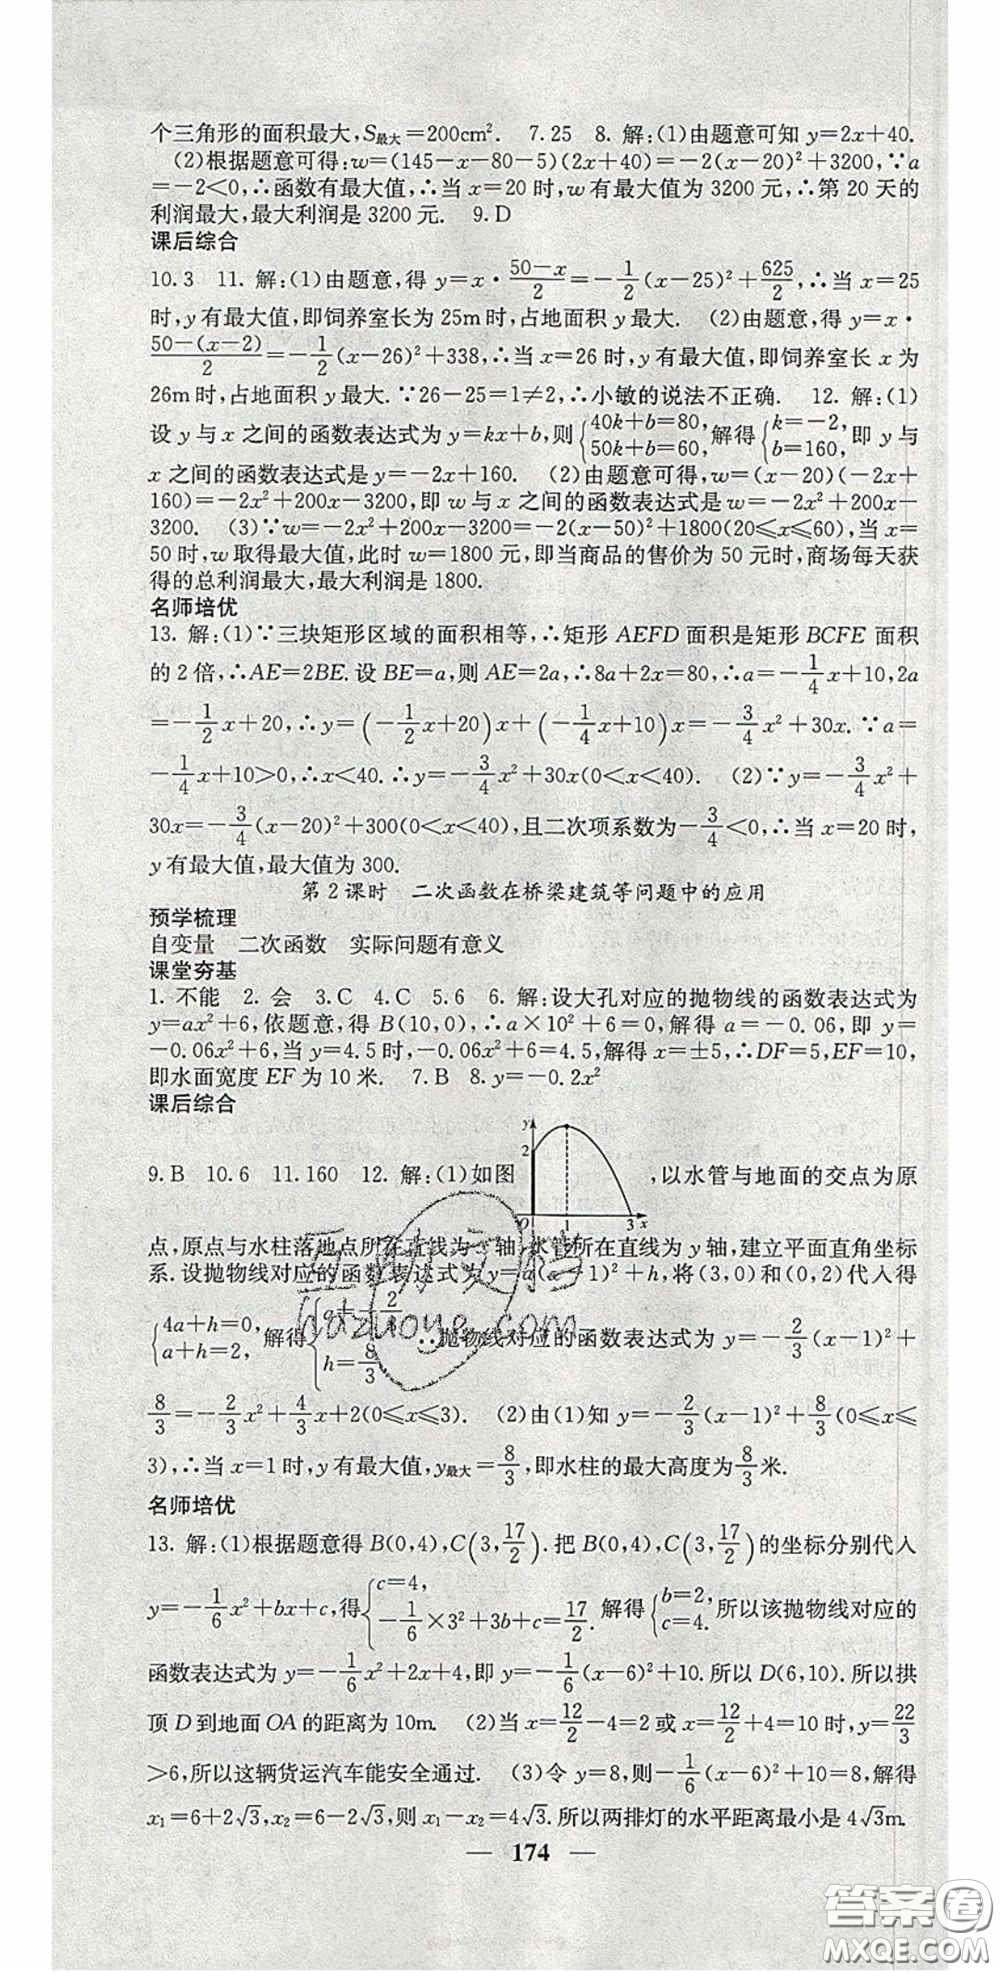 个三角形的面积最大,S最大=200cm². 7.25 8. 解:(1)由题意可知 y=2x+40.
(2)根据题意可得:w=(145-x-80-5)(2x+40)=-2(x-20)²+3200,∵a
=-2<0,∴函数有最大值,∴当 x=20 时,w 有最大值为 3200 元,∴第 20 天的
利润最大,最大利润是 3200 元. 9.D
课后综合
10.3 11. 解:(1)由题意,得 y=x·(50-x)/2=-1/2(x-25)²+625/2,∴当 x=25
时,y 有最大值,即饲养室长为 25m 时,占地面积 y 最大. (2)由题意,得 y=x·
(50-(x-2))/2=-1/2(x-26)²+338,∴当 x=26 时,y 有最大值,即饲养室长 x 为
26m 时,占地面积 y 最大.∵26-25=1≠2,∴小敏的说法不正确. 12. 解:(1)
设 y 与 x 之间的函数表达式为 y=kx+b,则{40k+b=80, 50k+b=60,解得{k=-2, b=160,即 y 与
x 之间的函数表达式是 y=-2x+160. (2)由题意可得,w=(x-20)(-2x+
160)=-2x²+200x-3200,即 w 与 x 之间的函数表达式是 w=-2x²+200x-
3200. (3)∵w=-2x²+200x-3200=-2(x-50)²+1800(20≤x≤60),当 x=
50 时,w 取得最大值,此时 w=1800 元,即当商品的售价为 50 元时,商场每天获
得的总利润最大,最大利润是 1800.
名师培优
13. 解:(1)∵三块矩形区域的面积相等,∴矩形 AEFD 面积是矩形 BCFE 面积
的 2 倍,∴AE=2BE.设 BE=a,则 AE=2a,∴8a+2x=80,∴a=-1/4x+10,2a
=-1/2x+20,∴y=(-1/2x+20)x+(-1/4x+10)x=-3/4x²+30x.∵a=
-1/4x+10>0,∴x<40.∴y=-3/4x²+30x(0<x<40). (2)∵y=-3/4x²+
30x=-3/4(x-20)²+300(0<x<40),且二次项系数为-3/4<0,∴当 x=20 时,
y 有最大值,最大值为 300.
第 2 课时 二次函数在桥梁建筑等问题中的应用
预学梳理
自变量 二次函数 实际问题有意义
课堂夯基
1. 不能 2. 会 3.C 4.C 5.6 6. 解:设大孔对应的抛物线的函数表达式为
y=ax²+6,依题意,得 B(10,0),∴a×10²+6=0,解得 a=-0.06,即 y=
-0.06x²+6,当 y=4.5 时,-0.06x²+6=4.5,解得 x=±5,∴DF=5,EF=10,
即水面宽度 EF 为 10 米. 7.B 8.y=-0.2x²
课后综合
9.B 10.6 11.160 12. 解:(1)如图 y 2 O 1 3 x ,以水管与地面的交点为原
点,原点与水柱落地点所在直线为 x 轴,水管所在直线为 y 轴,建立平面直角坐标
系.设抛物线对应的函数表达式为 y=a(x-1)²+h,将(3,0)和(0,2)代入得
{4a+h=0, a+h=2,解得{a=-2/3 h=8/3 ∴抛物线对应的函数表达式为 y=-2/3(x-1)²+
8/3=-2/3x²+4/3x+2(0≤x≤3). (2)由(1)知 y=-2/3(x-1)²+8/3(0≤x≤
3),∴当 x=1 时,y 有最大值,y最大=8/3,即水柱的最大高度为8/3米.
名师培优
13. 解:(1)根据题意得 B(0,4),C(3,17/2).把 B(0,4),C(3,17/2)的坐标分别代入
y=-1/6x²+bx+c,得{c=4, -1/6×3²+3b+c=17/2.解得{b=2, c=4.所以该抛物线对应的
函数表达式为 y=-1/6x²+2x+4,即 y=-1/6(x-6)²+10.所以 D(6,10).所以拱
顶 D 到地面 OA 的距离为 10m. (2)当 x=12/2-4=2 或 x=12/2+4=10 时,y=22/3
>6,所以这辆货运汽车能安全通过. (3)令 y=8,则-1/6(x-6)²+10=8,解得
x₁=6+2√3,x₂=6-2√3,则 x₁-x₂=4√3.所以两排灯的水平距离最小是 4√3m.
— 174 —
互动文档
hdzuoye.com
答案圈
MXQE.COM